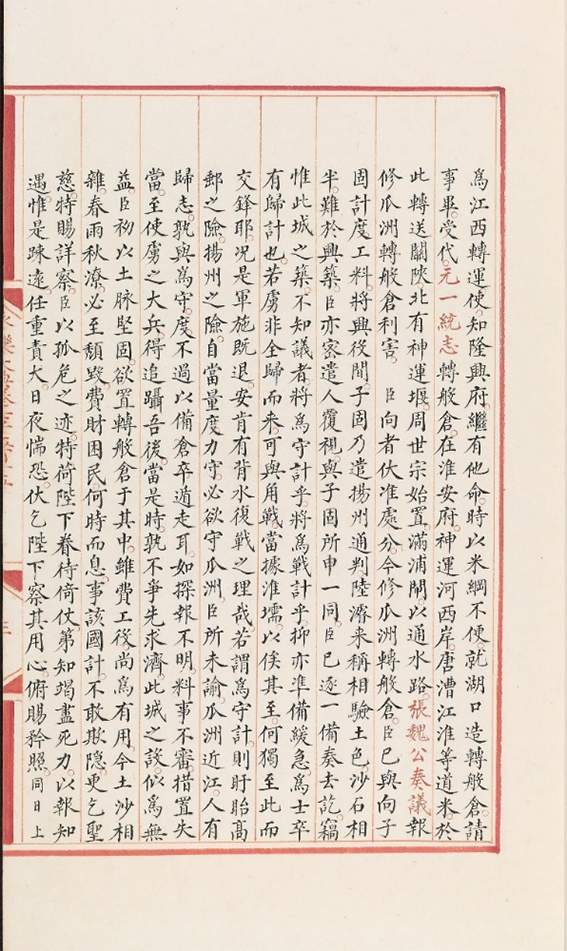 爲江西轉運使。知隆興府。繼有他命。時以米綱不便。就湖口造轉般倉。請
事畢。受代。元一統志轉般倉。在淮安府神運河西岸。唐漕江淮等道米。於
此轉送關陝。北有神運堰。周世宗始置滿浦閘。以通水路。張魏公奏議報
修瓜洲轉般倉利害。 臣向者伏准處分。令修瓜洲轉般倉。臣已與向子
固計度工料。將興役間。子固乃遣揚州通判陸濬來稱。相驗土色。沙石相
半。難於興築。臣亦密遣人覆視。與子固所申一同。臣已逐一備奏去訖。竊
惟此城之築。不知議者將爲守計乎。將爲戰計乎。抑亦準備緩急。爲士卒
有歸計也。若虜非全歸而來。可與角戰。當據淮壖。以俟其至。何獨至此而
交鋒耶。况是軍施既退。安肯有背水復戰之理哉。若謂爲守計。則盱眙高
郵之險。揚州之險。自當量度力守。必欲守瓜洲。臣所未諭。瓜洲近江。人有
歸志。孰與爲守。度不過以備倉卒遁走耳。如探報不明。料事不審。措置失
當。至使虜之大兵得追躡吾後。當是時。孰不爭先求濟。此城之設。似爲無
益。臣初以土脉堅固。欲置轉般倉于其中。雖費工役。尚爲有用。今土沙相
雜。春雨秋潦。必至頽毀。費財困民。何時而息。事該國計。不敢欺隱。更乞聖
慈。特賜詳察。臣以孤危之迹。特荷陛下眷待倚仗。第知竭盡死力。以報知
遇。惟是踈遠。任重責大。日夜惴恐。伏乞陛下察其用心。俯賜矜照。同日上